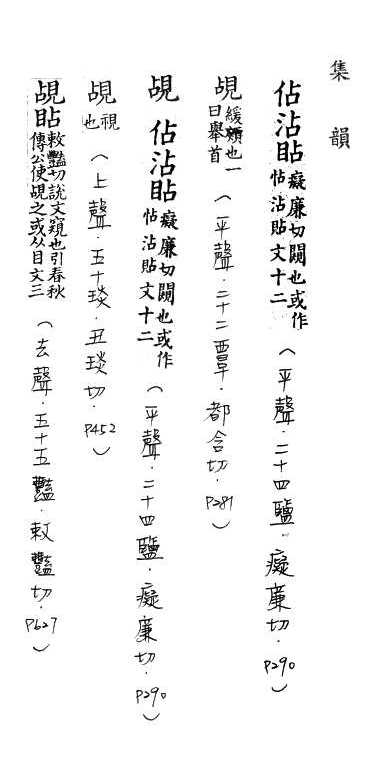 集韻
佔沾䀡癡廉切闚也或作佔沾貼文十二（平聲．二十四鹽．癡廉切．P290）
覘緩頰也一曰舉首（平聲．二十二覃．都含切．P281）
覘佔沾䀡癡廉切闚也或作佔沾貼文十二（平聲．二十四鹽．癡廉切．P290）
覘視也（上聲．五十琰．丑琰切．P452）
覘䀡敕豔切說文窺也引春秋傳公使覘之或从目文三（去聲．五十五豔．敕豔切．P627）